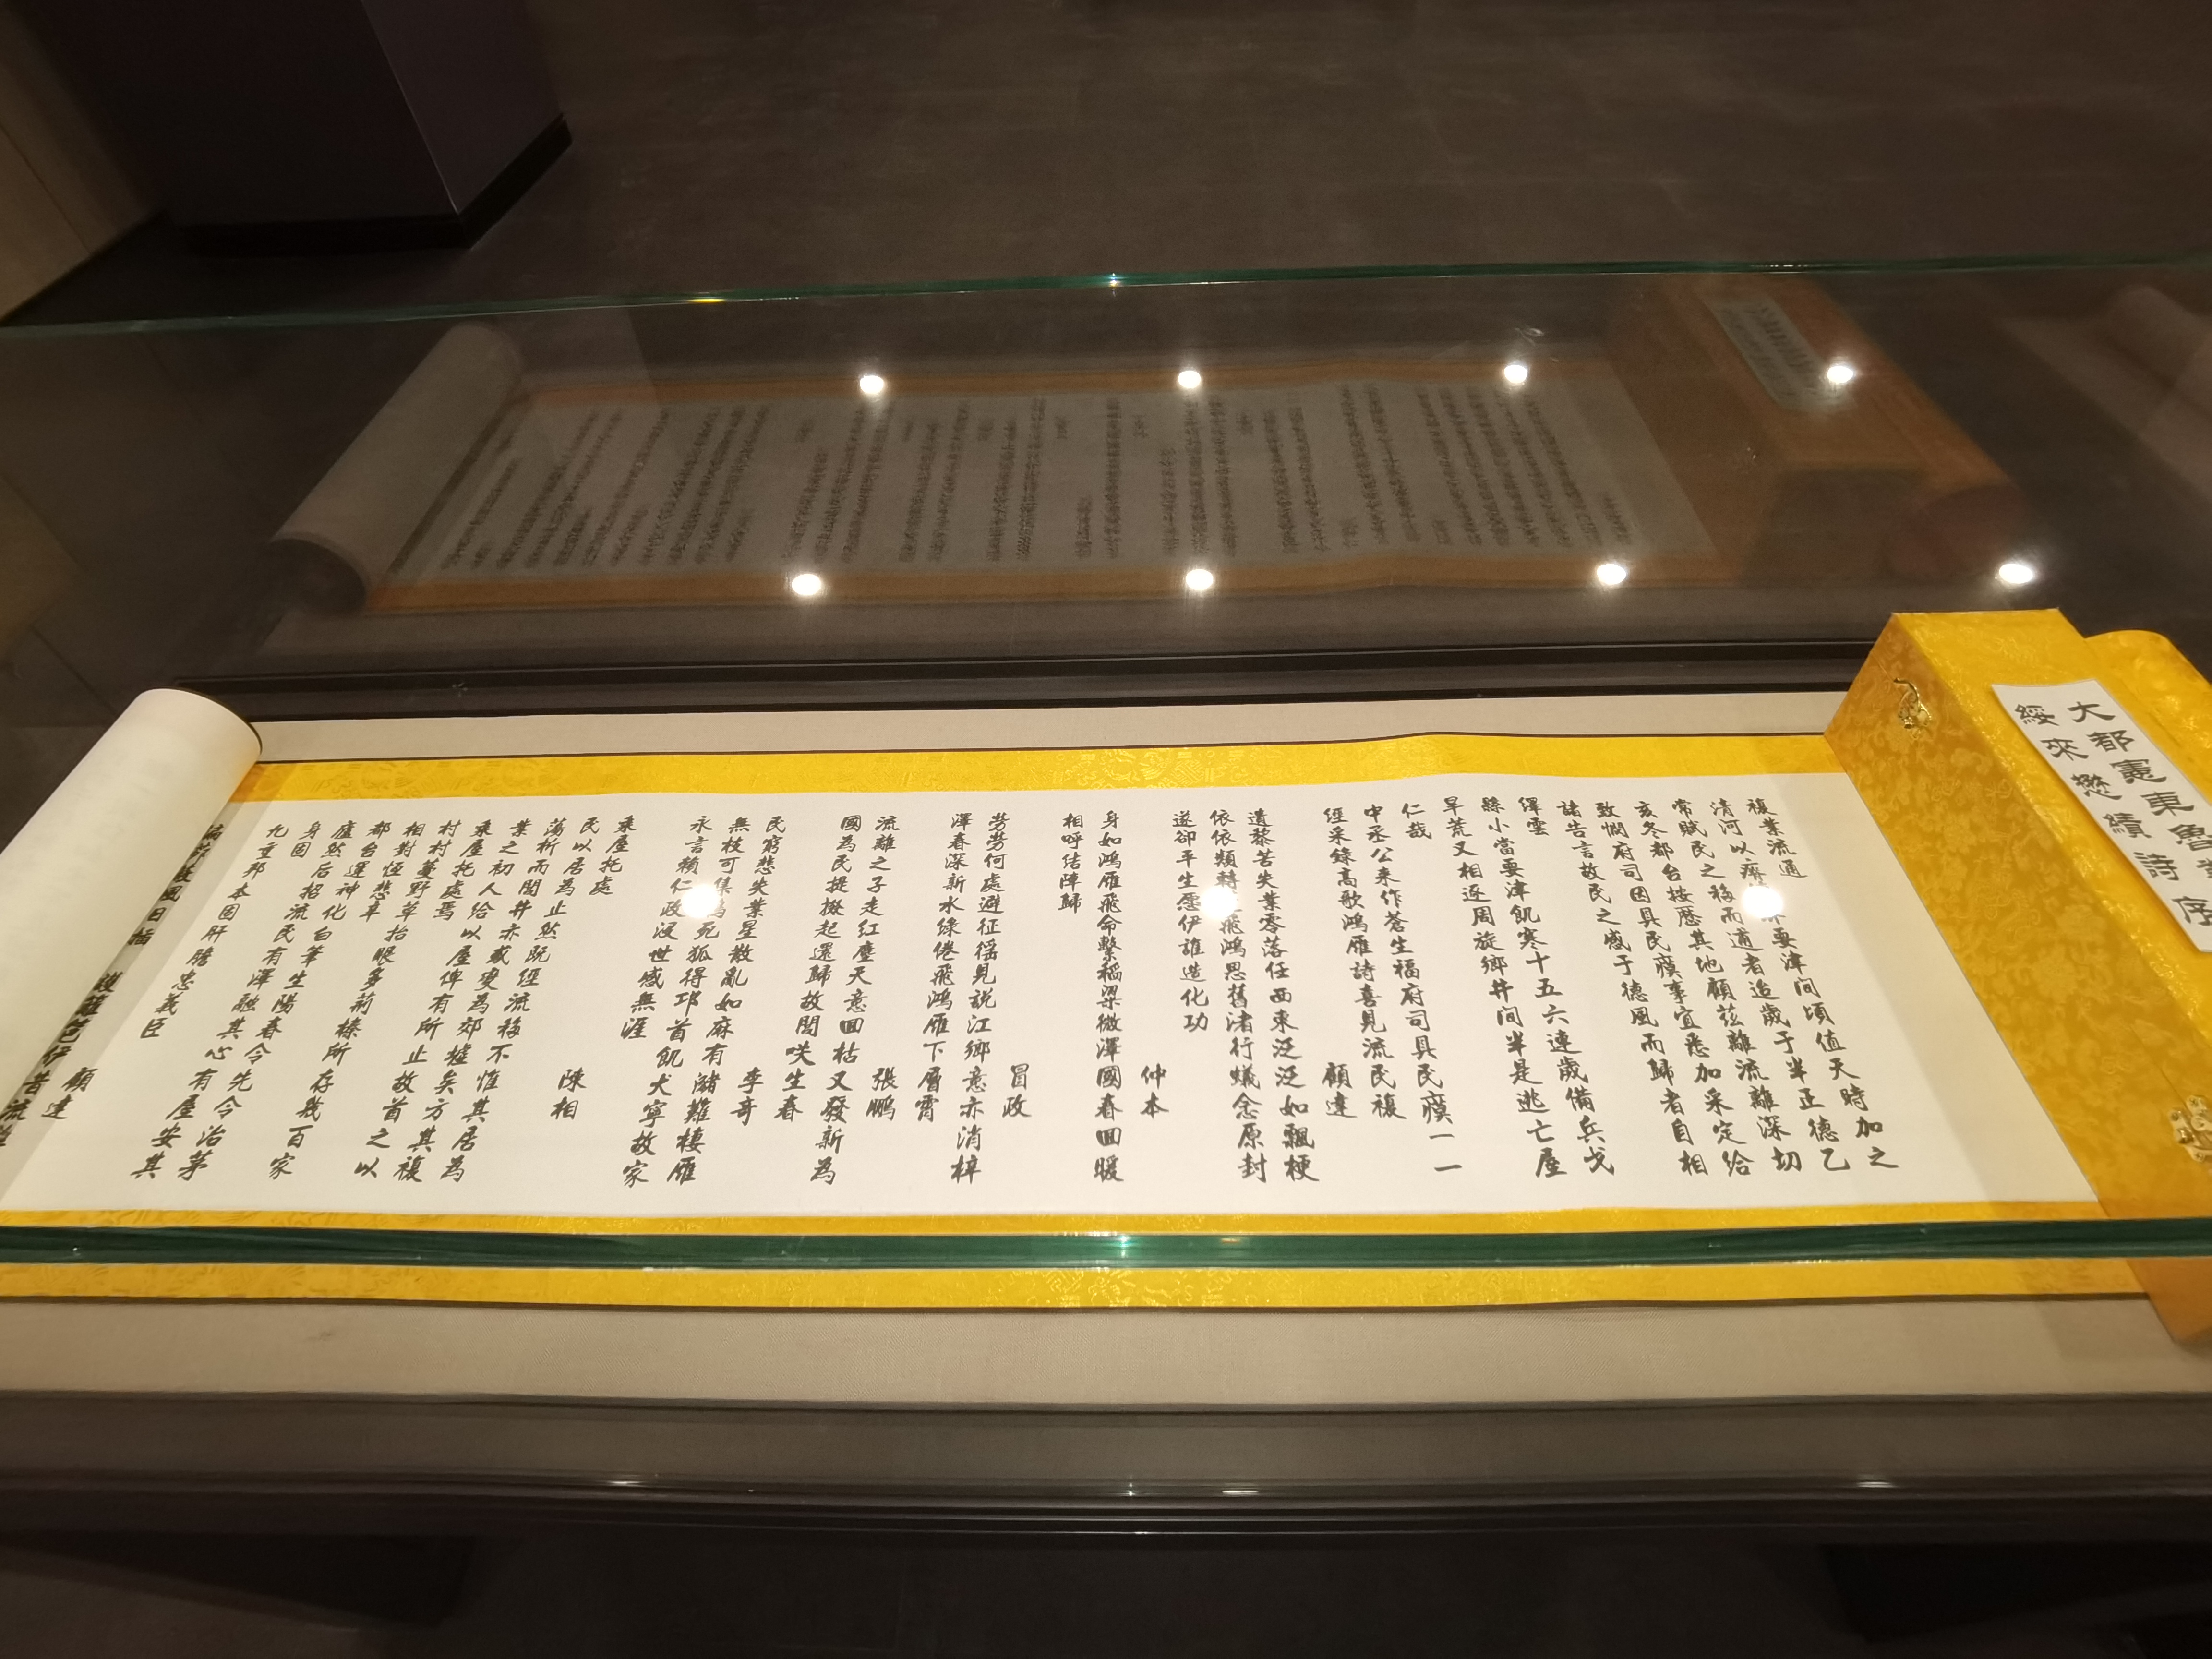 大都憲東魯
綏來懋績詩
複業流通
清河以瘠要津間頃值天時加之
常賦民之移而逋者造歲于半正德乙
亥冬都台按歷其地顧茲離流離深切
致憫府司因具民瘼事宜悉加采定給
諸告言故民之感于德風而歸者自相
繹雲
縣小當要津飢寒十五六連歲備兵戈
旱荒又相逐周旋鄉井間半是逃亡屋
仁哉
中丞公来作蒼生福府司具民瘼一一
經采錄高歌鴻雁詩喜見流民複
顧達
遺黎苦失業零落任西東泛泛如飄梗
依依類轉飛鴻思舊渚行蟻念原封
遂卻平生愿伊誰造化功
仲本
身如鴻雁飛命繫稻梁微澤國春回暖
相呼結陣歸
冒政
勞勞何處避征徭見説江鄉意亦消梓
澤春深新水綠倦飛鴻雁下層霄
張鵬
流離之子走紅塵天意回枯又發新為
國為民提掇起還歸故閭咲生春
李奇
民窮悲失業星散亂如麻有瀦難棲雁
無枝可集鴉死狐得邛首飢犬寧故家
永言賴仁政沒世感無涯
陳相
乘屋托處
民以居為止然既經流移不惟其居為
蕩析而閭井亦蕆變為郊墟矣方其複
業之初人給以屋俾有所止故首之以
乘屋托處焉
村村蔓野草抬眼多荊榛所存幾百家
相對恆悲辛
都台運神化白筆生陽春今先令治茅
廬然后招流民有澤融其心有屋安其
身因
九重邦本固肝膽忠義臣
顧達
風日插護籬笆伊昔流